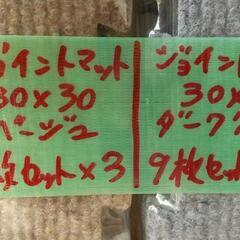 ョイントマット
30×30
ベージュ
枚セット×3
ジョイント
30×
ダーク
9枚セット